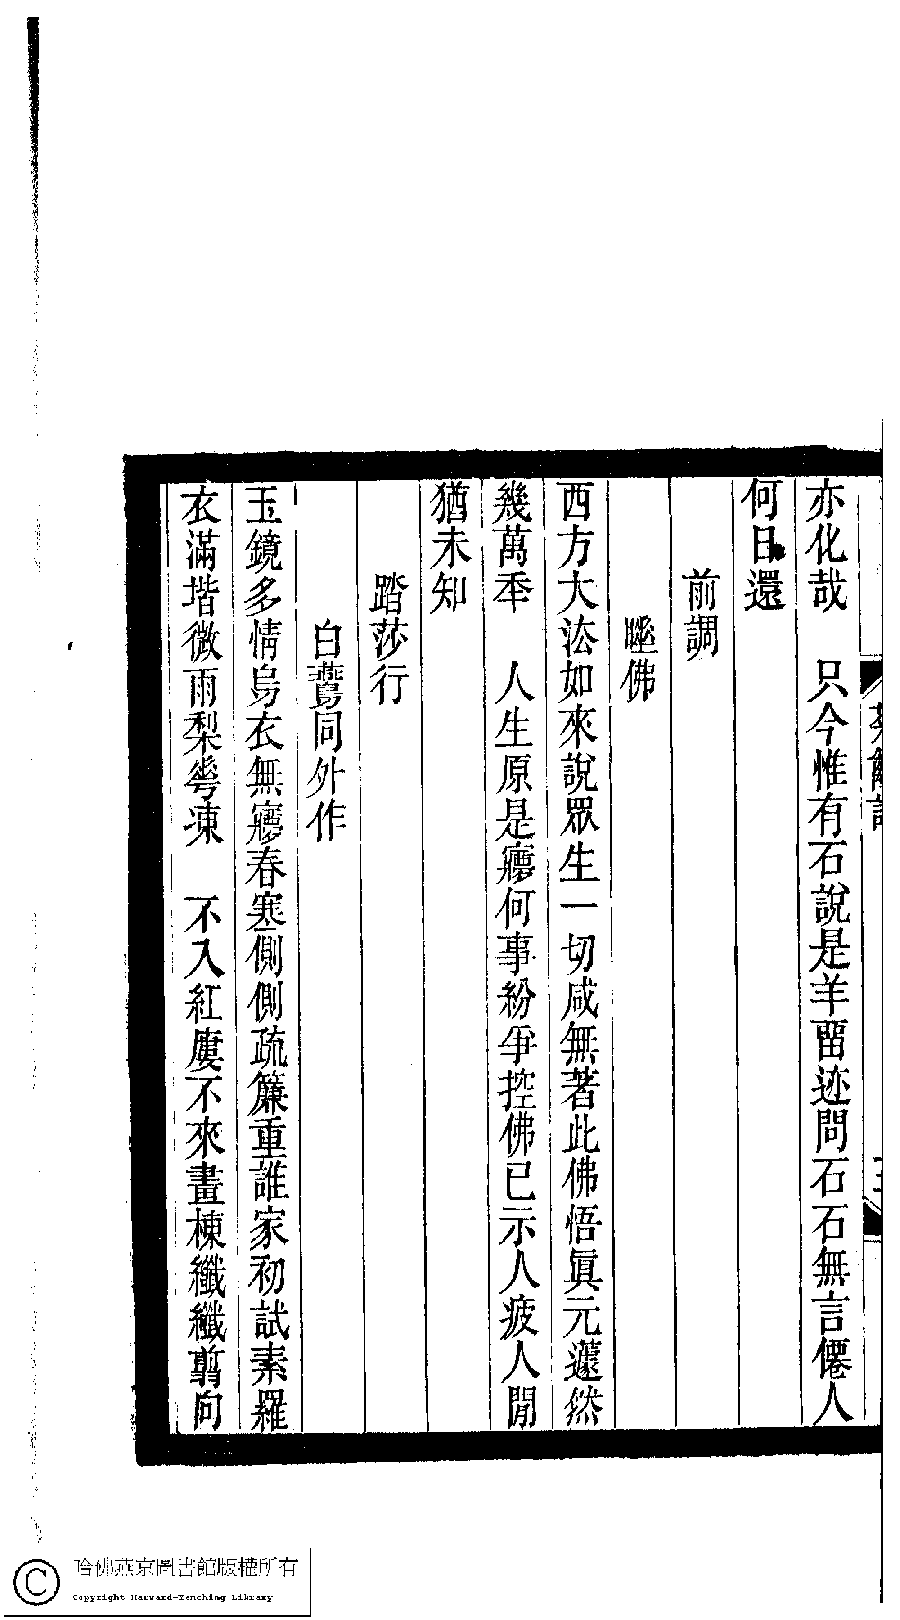 亦化哉　只今惟有石說是羊畱迹問石石無言僊人
何日還
前調
睡佛
西方大㳒如來說眾生一切咸無著此佛悟眞元蘧然
幾萬秊　人生原是㝱何事紛爭控佛已示人疲人閒
猶未知
踏莎行
白鷰同外作
玉鏡多情烏衣無㝱春寒側側疏簾重誰家初試素羅
衣滿堦微雨梨蕚凍　不入紅廔不來畫棟纖纖翦向
哈佛燕京圖書館版權所有
Copyright Harvard-Yenching Library